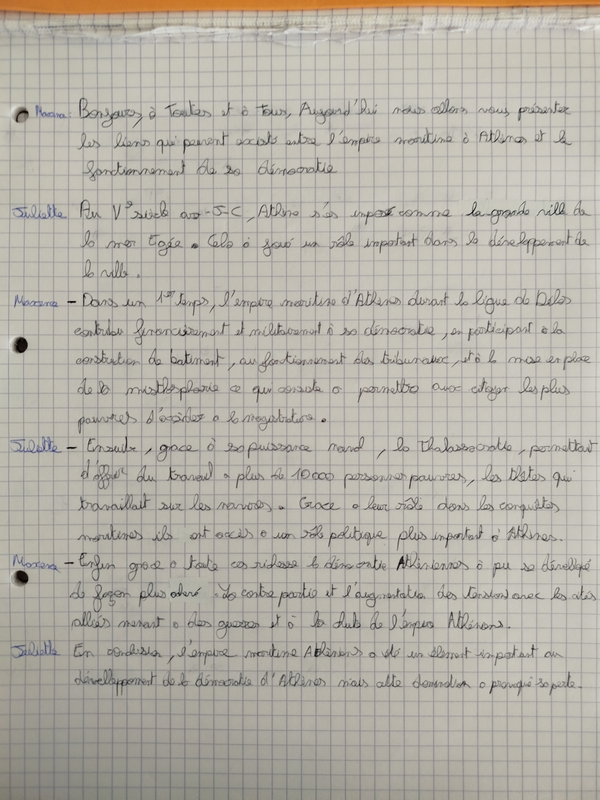 Maxena: Bonjours, à Toutes et à Tous, Aujourd'hui nous allons vous présenter
les liens qui peuvent exister entre l'empire maritime à Athènes et le
fonctionnement de sa démocratie
Juliette Au Ve siècle av-J-C, Athène s'es imposé comme la grande ville de
la mer Egée. Cela à joué un rôle important dans le développement de
la ville.
Maxena - Dans un 1er temps, l'empire maritime d'Athènes durant la ligue de Délos
contribu financièrement et militairement à sa démocratie, en participant à la
construction de batiment, au fontionnement des tribunaux, et à la mise en place
de la misthophorie ce qui consiste a permettre aux citoyen les plus
pauvres d'accéder a la magistrature.
Juliette - Ensuite, grace à sa puissance naval, la Thalassocratie, permettait
d'offrir du travail a plus de 10 000 personnes pauvres, les thètes qui
travaillait sur les navires. Grace a leur rôle dans les conquêtes
maritimes ils ont accès a un rôle politique plus important à Athènes.
Maxena - Enfin grace a toute ces richesse la démocratie Athéniennes à pu se développé
de façon plus . La contre partie et l'augmentation des tension avec les cités
alliés menant a des guerres et à la chute de l'empire Athéniens.
Juliette En conclusion, l'empire maritime Athéniens a été un élément important au
dévelloppement de la démocratie d'Athènes mais cette domination a provoqué sa perte.